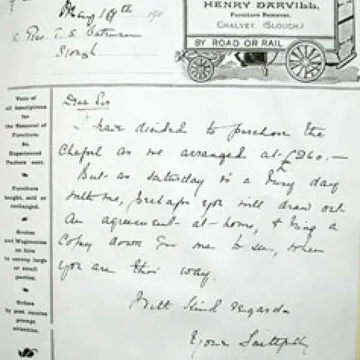 HENRY DARVILL,
Furniture Remover,
CHALVEY, (SLOUGH.)
BY ROAD OR RAIL
May 19th 191
Rev. T. S.
Slough
Vans of
all descriptions
for the
Removal of
Furniture,
&c.
Experienced
Packers sent.
Furniture
bought, sold or
exchanged.
and Waggonettes
on hire
to convey large
or small
parties.
Orders
by post receive
prompt
attention.
Dear Sir
I have decided to purchase the
Chapel as we arranged at £260.—
But as Saturday is a busy day
with me, perhaps you will draw out
an agreement at home, & bring a
copy down for me to see, when
you are this way.
With kind regards
Yours faithfully